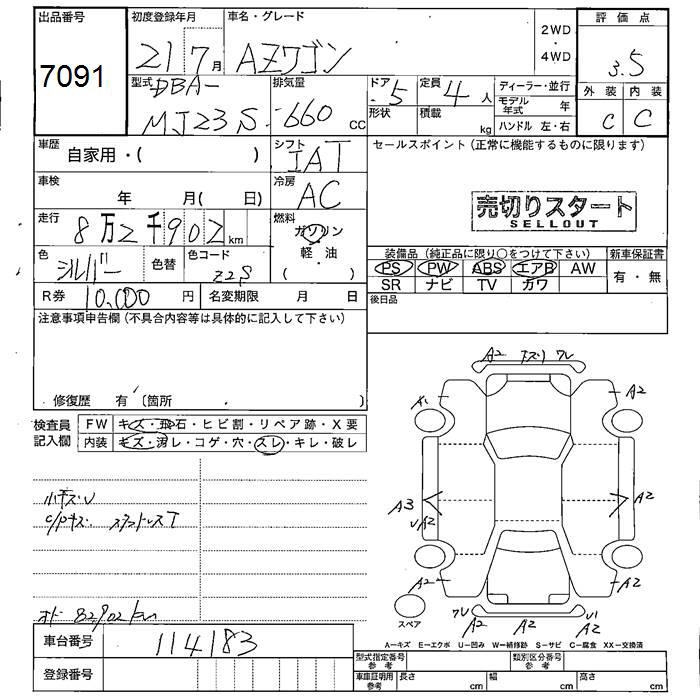 出品番号
7091
初度登録年月
21 7月
車名・グレード
AZワゴン
2WD
・
4WD
評価点
3.5
外装 内装
C C
型式
DBA-
MJ23S
排気量
660 cc
ドア
5
形状
定員
4人
積載
kg
ディーラー・並行
モデル年式 年
ハンドル 左・右
車歴
自家用・( )
シフト
IAT
セールスポイント (正常に機能するものに限ります)
車検
年 月( 日)
冷房
AC
売切りスタート
SELLOUT
走行
8万2千902km
燃料
ガソリン
軽・油
( )
色
シルバー
色替
色コード
Z2S
装備品 (純正品に限り○をつけて下さい)
新車保証書
PS PW ABS エアB AW
SR ナビ TV カワ
有・無
R券 10,000円
名変期限 月 日
後日品
注意事項申告欄 (不具合内容等は具体的に記入して下さい)
・修復歴 有 (箇所 )
検査員
記入欄
FW キズ・飛石・ヒビ割・リペア跡・X要
内装 キズ・汚レ・コゲ・穴・スレ・キレ・破レ
小キズ・U
スタットレスT
オド 82902km
A2 下ズリ ワレ
A1
A2
A3
UA2
A2
A2
A2
スペア
ワU
A2
A2
U1
A2
A−キズ E−エクボ U−凹み W−補修跡 S−サビ C−腐食 XX−交換済
車台番号
114183
登録番号
型式指定番号
参考
類別区分番号
参考
車庫証明用
参考
長さ cm
幅 cm
高さ cm